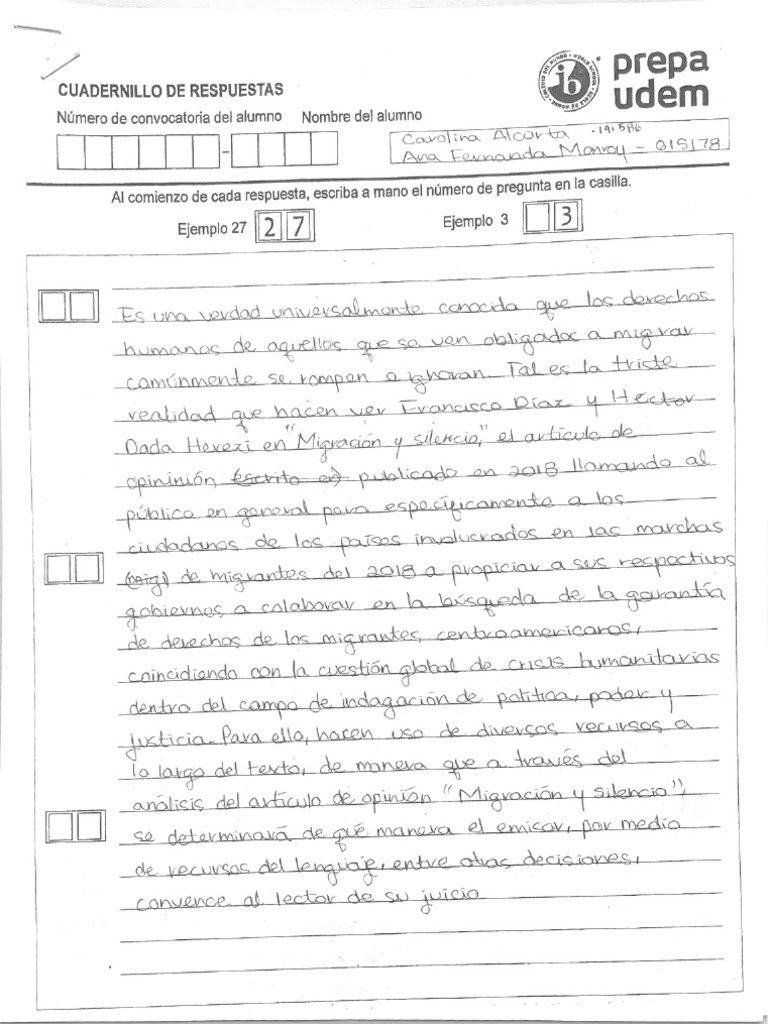 prepa
udem
CUADERNILLO DE RESPUESTAS
Número de convocatoria del alumno Nombre del alumno
Carolina Alcorta · 19.586
Ana Fernanda Monroy - 015178
Al comienzo de cada respuesta, escriba a mano el número de pregunta en la casilla.
Ejemplo 27 27 Ejemplo 3 3
Es una verdad universalmente conocida que los derechos
humanos de aquellos que se ven obligados a migrar
comúnmente se rompen o ignoran. Tal es la triste
realidad que hacen ver Francisco Díaz y Hector
Dada Herezi en "Migración y silencio," el artículo de
opininión, (escrito en) publicado en 2018 llamando al
público en general para específicamente a los
ciudadanos de los países involucrados en las marchas
(mig) de migrantes del 2018 a propiciar a sus respectivos
gobiernos a colaborar en la búsqueda de la garantía
de derechos de los migrantes centroamericanos,
coincidiendo con la cuestión global de crisis humanitarias
dentro del campo de indagación de política, poder y
justicia. Para ello, hacen uso de diversos recursos a
lo largo del texto, de manera que a través del
análisis del artículo de opinión "Migración y silencio",
se determinará de qué manera el emisor, por medio
de recursos del lenguaje, entre otras decisiones,
convence al lector de su juicio